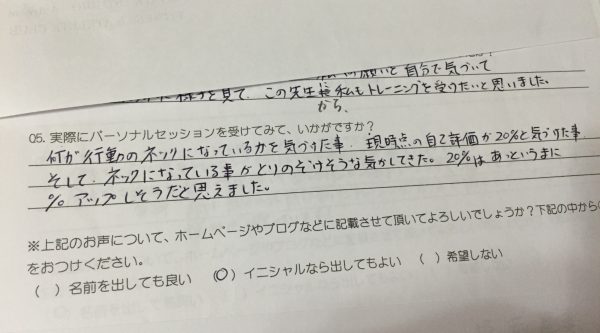 自分で気づいて
を見て、この先生に私もトレーニングを受けたいと思いました。
から、
Q5. 実際にパーソナルセッションを受けてみて、いかがですか？
何が行動のネックになっているかを気づけた事、現時点の自己評価が20%と気づけた事
そして、ネックになっている事がとりのぞけそうな気がしてきた。20%はあっというまに
%アップしそうだと思えました。
※上記のお声について、ホームページやブログなどに記載させて頂いてよろしいでしょうか？下記の中から
をおつけください。
（ ）名前を出しても良い （○）イニシャルなら出してもよい （ ）希望しない